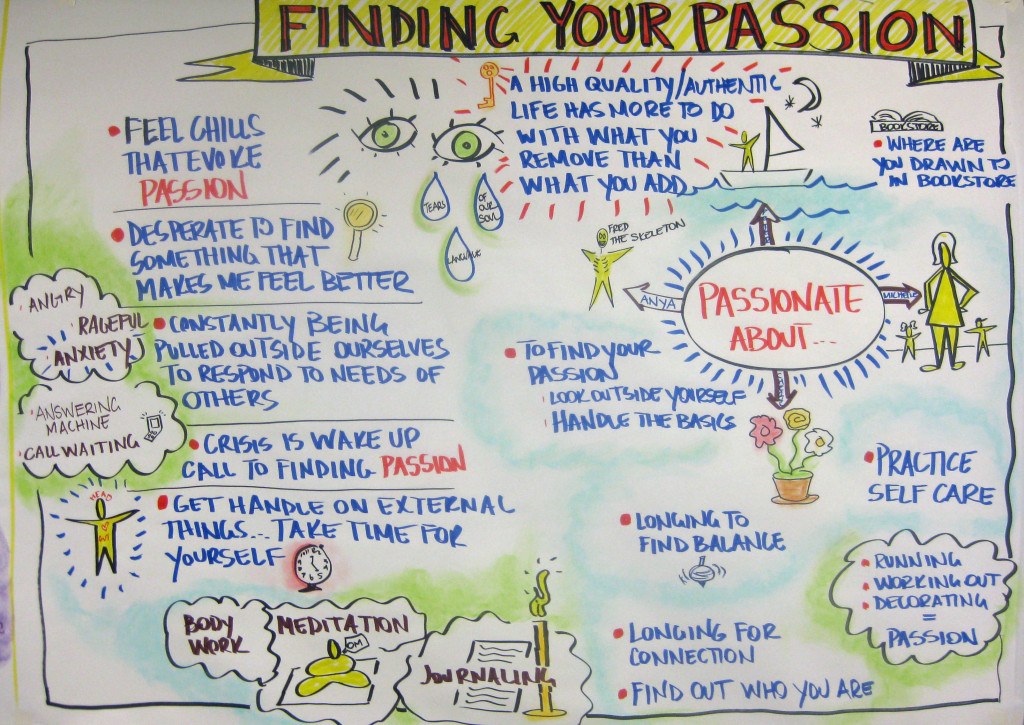 FINDING YOUR PASSION
• FEEL CHILLS
THAT EVOKE
PASSION
• DESPERATE TO FIND
SOMETHING THAT
MAKES ME FEEL BETTER
TEARS
OF
OUR
SOUL
LANGUAGE
A HIGH QUALITY/AUTHENTIC
LIFE HAS MORE TO DO
WITH WHAT YOU
REMOVE THAN
WHAT YOU ADD
BOOKSTORE
• WHERE ARE
YOU DRAWN TO
IN BOOKSTORE
FRED
THE SKELETON
ANYA
PASSIONATE
ABOUT...
MICHELLE
• ANGRY
RAGEFUL
ANXIETY
• CONSTANTLY BEING
PULLED OUTSIDE OURSELVES
TO RESPOND TO NEEDS OF
OTHERS
• ANSWERING
MACHINE
• CALL WAITING
• CRISIS IS WAKE UP
CALL TO FINDING PASSION
HEAD
GUT
• GET HANDLE ON EXTERNAL
THINGS... TAKE TIME FOR
YOURSELF
BODY
WORK
MEDITATION
OM
JOURNALING
• TO FIND YOUR
PASSION
LOOK OUTSIDE YOURSELF
HANDLE THE BASICS
• PRACTICE
SELF CARE
• LONGING TO
FIND BALANCE
• RUNNING
• WORKING OUT
• DECORATING
=
PASSION
• LONGING FOR
CONNECTION
• FIND OUT WHO YOU ARE